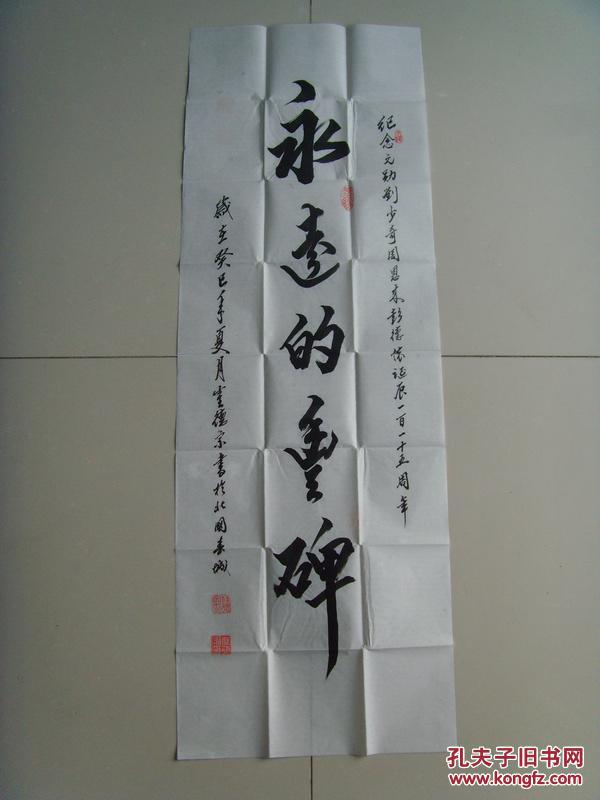 纪念元勋刘少奇周恩来彭德怀诞辰一百一十五周年
永远的丰碑
岁在癸巳年夏月 德宗书于北国春城
孔夫子旧书网
www.kongfz.com